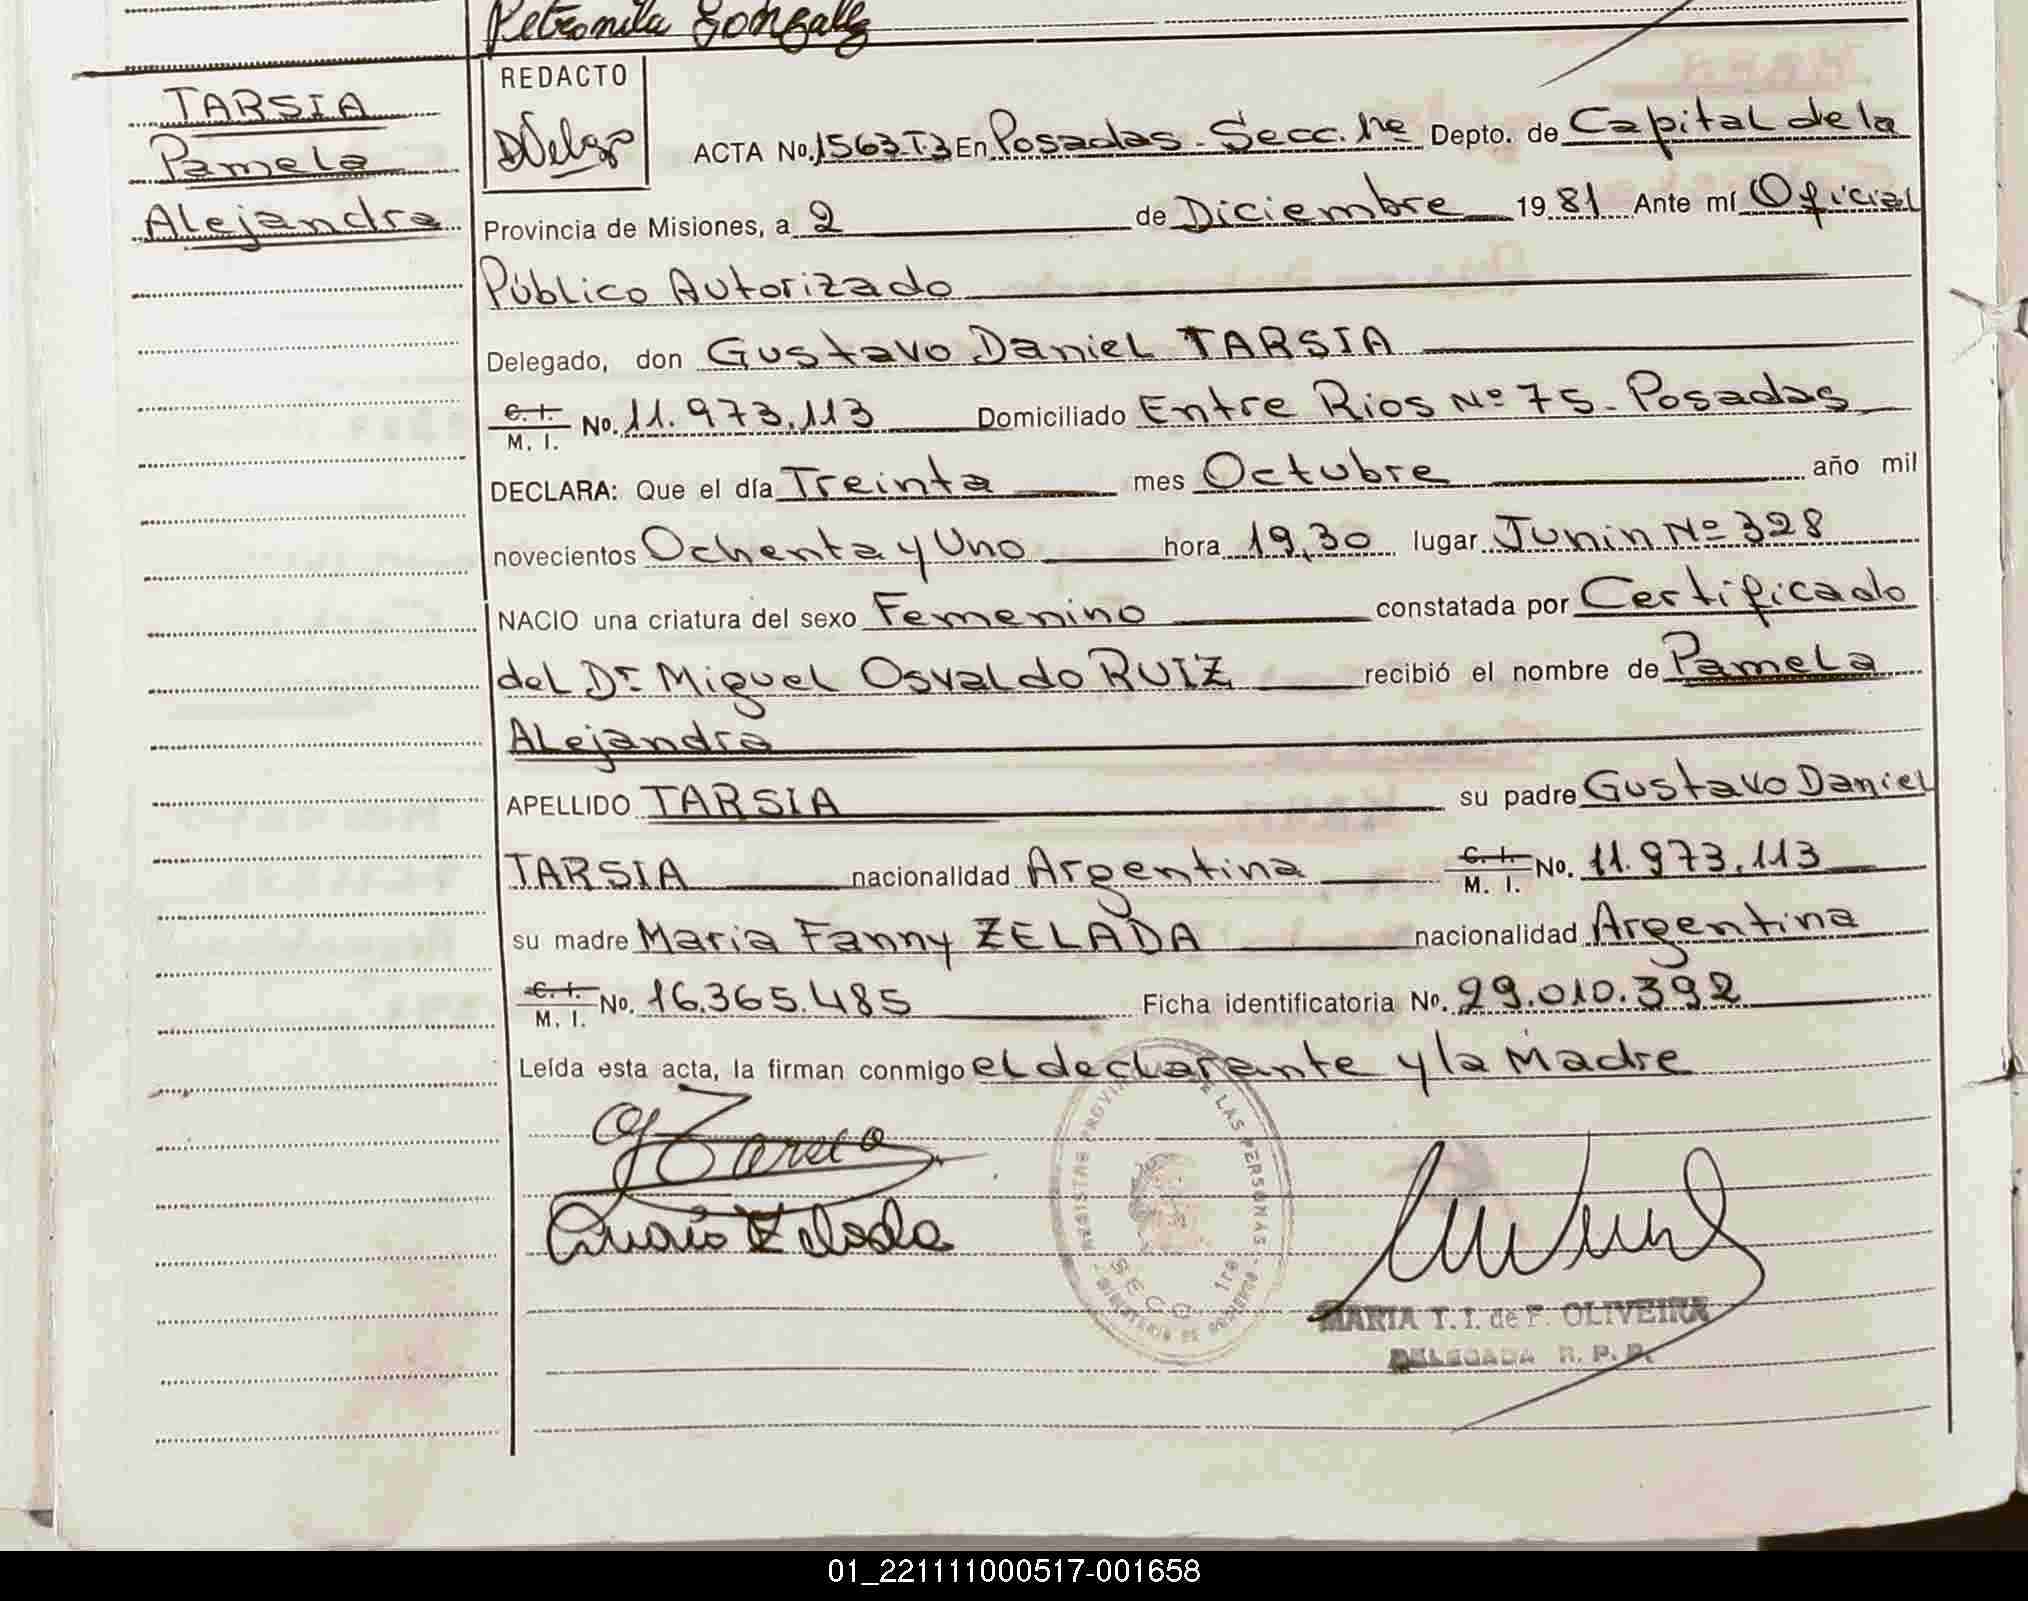 Petronila Gonzalez
TARSIA
Pamela
Alejandra
REDACTO
ACTA No. 1563 T.3 En Posadas - Secc. 1re Depto. de Capital de la
Provincia de Misiones, a 2 de Diciembre 19 81 Ante mí Oficial
Público Autorizado
Delegado, don Gustavo Daniel TARSIA
C. I.
M. I. No. 11.973.113 Domiciliado Entre Rios Nº 75 - Posadas
DECLARA: Que el día Treinta mes Octubre año mil
novecientos Ochenta y Uno hora 19,30 lugar Junin Nº 328
NACIO una criatura del sexo Femenino constatada por Certificado
del Dr. Miguel Osvaldo RUIZ recibió el nombre de Pamela
Alejandra
APELLIDO TARSIA su padre Gustavo Daniel
TARSIA nacionalidad Argentina C. I. M. I. No. 11.973.113
su madre Maria Fanny ZELADA nacionalidad Argentina
C. I.
M. I. No. 16.365.485 Ficha identificatoria No. 29.010.392
Leída esta acta, la firman conmigo el declarante y la Madre
G Tarsia
Zelada
DE LAS PERSONAS
SECC. 1re
MARIA T. I. de F. OLIVEIRA
DELEGADA R. P. P.
01_221111000517-001658